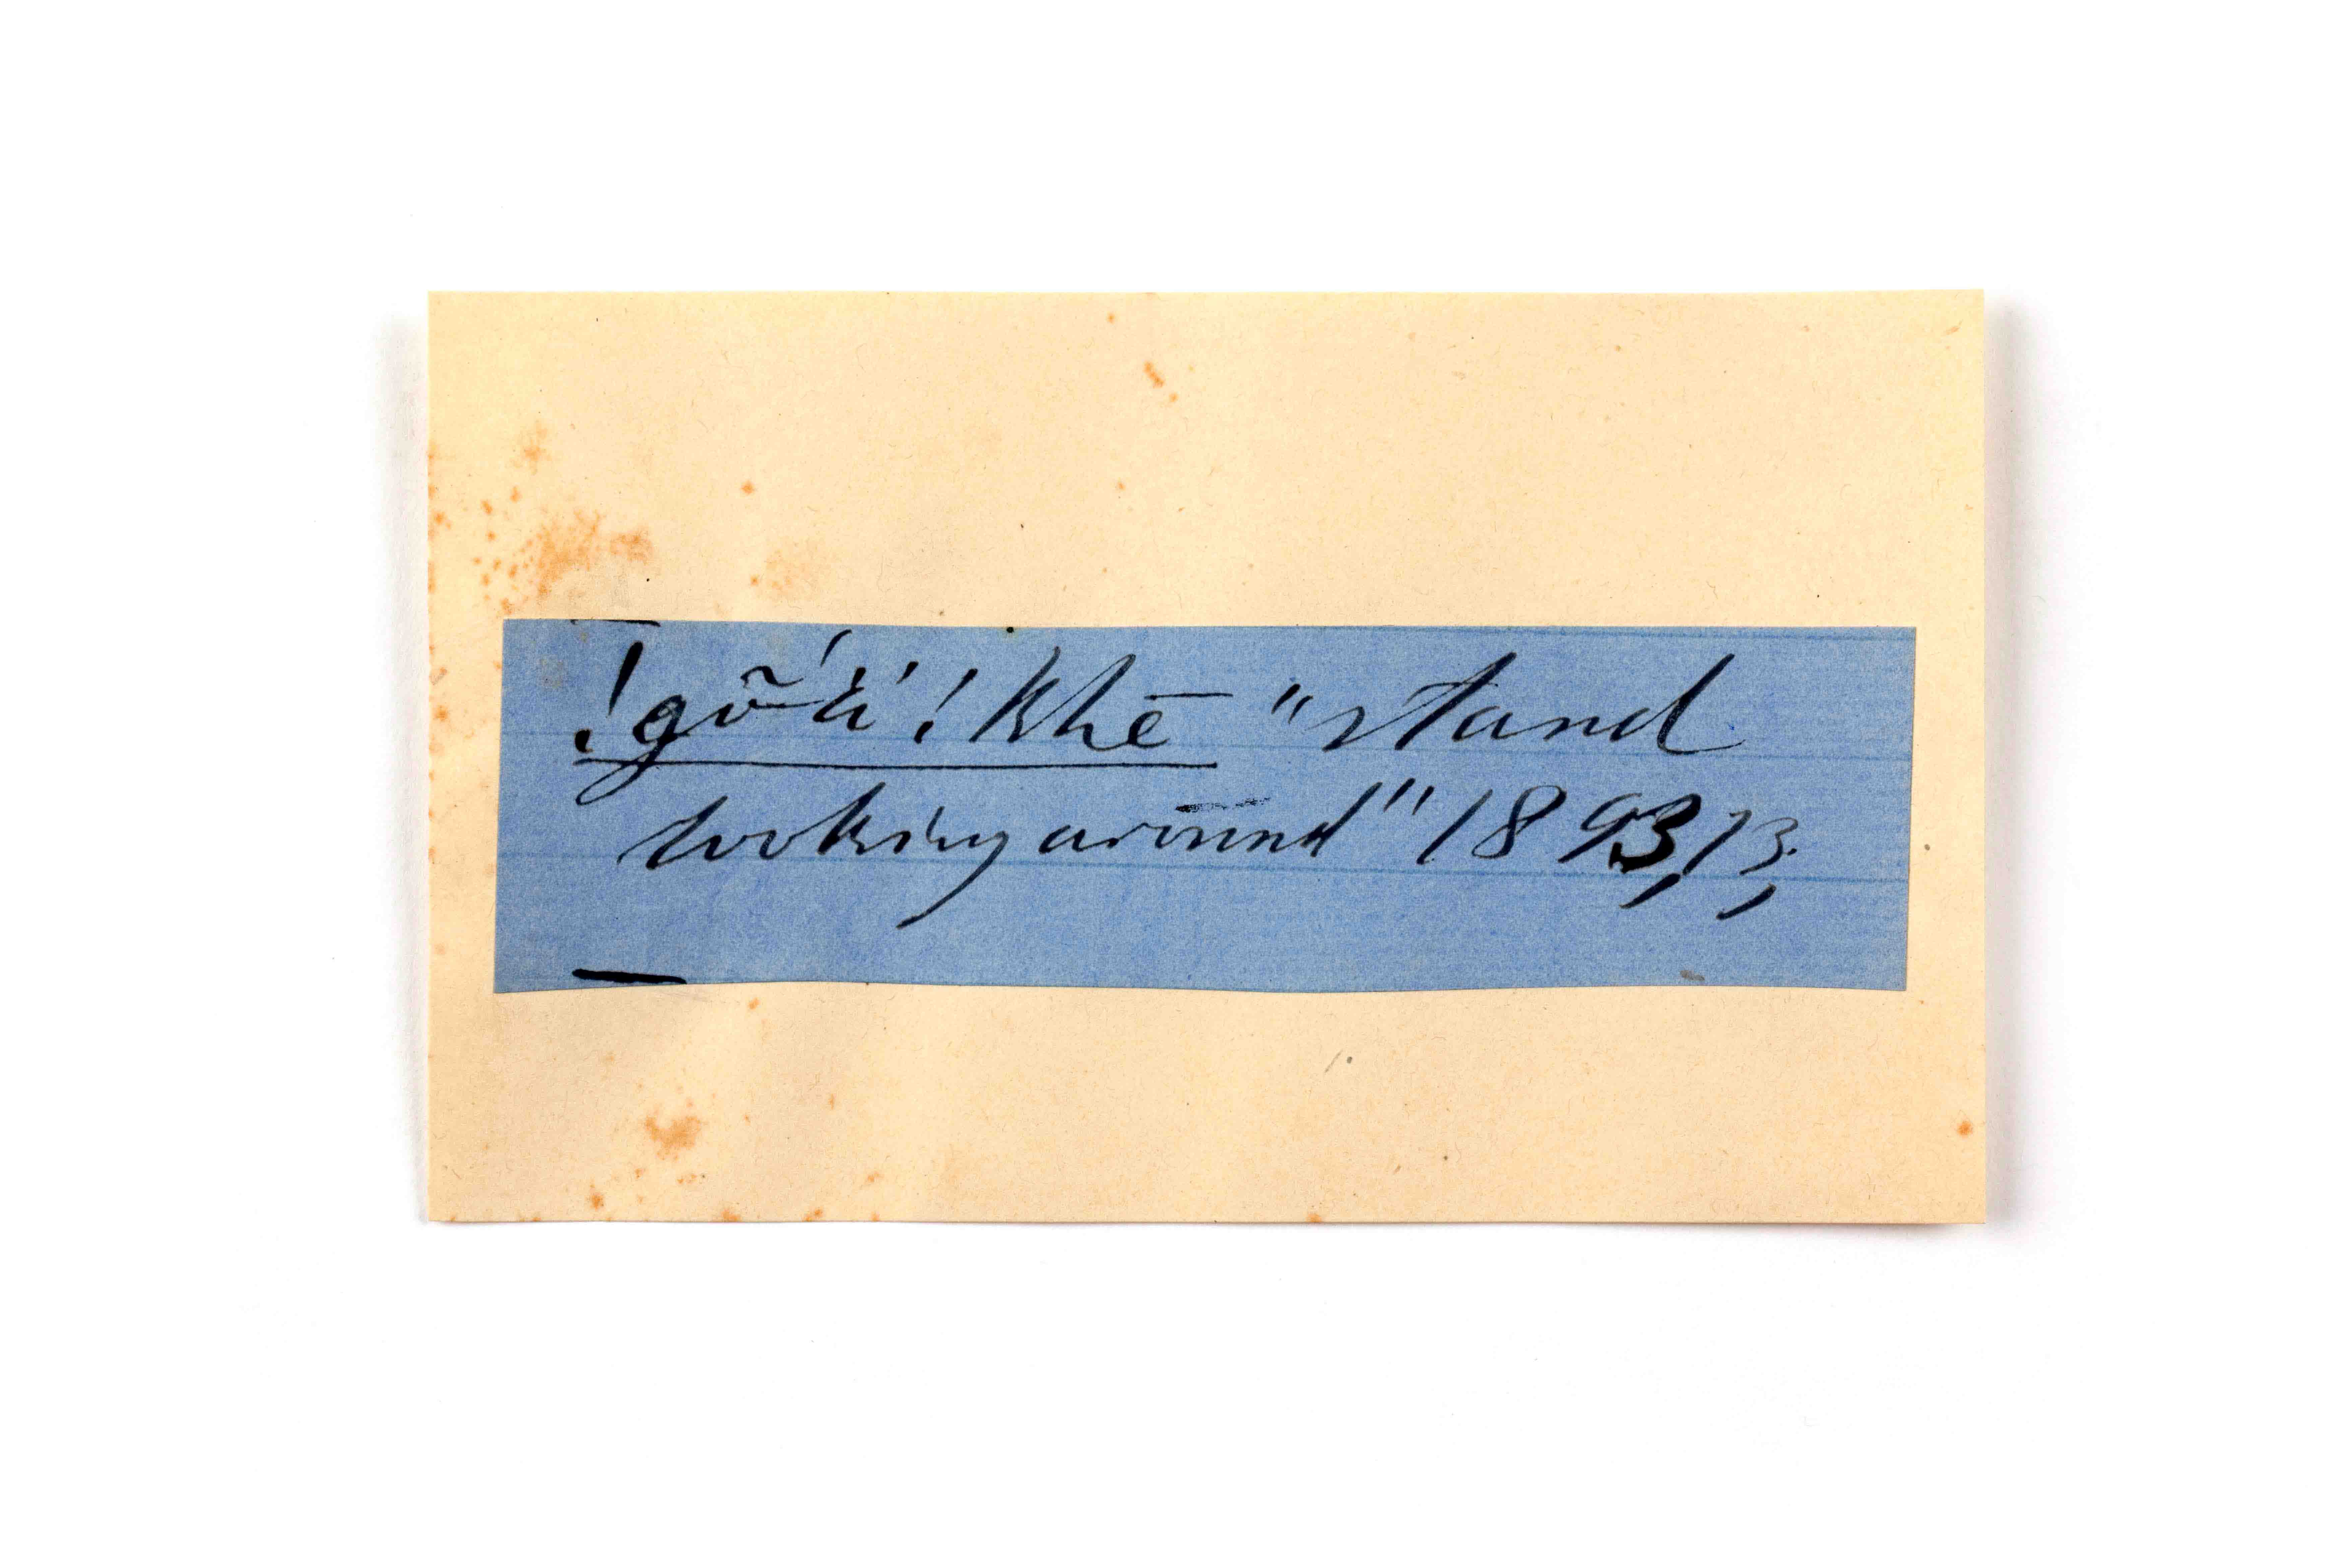 !gõä́ !khē "stand
looking around" 1893, 13,